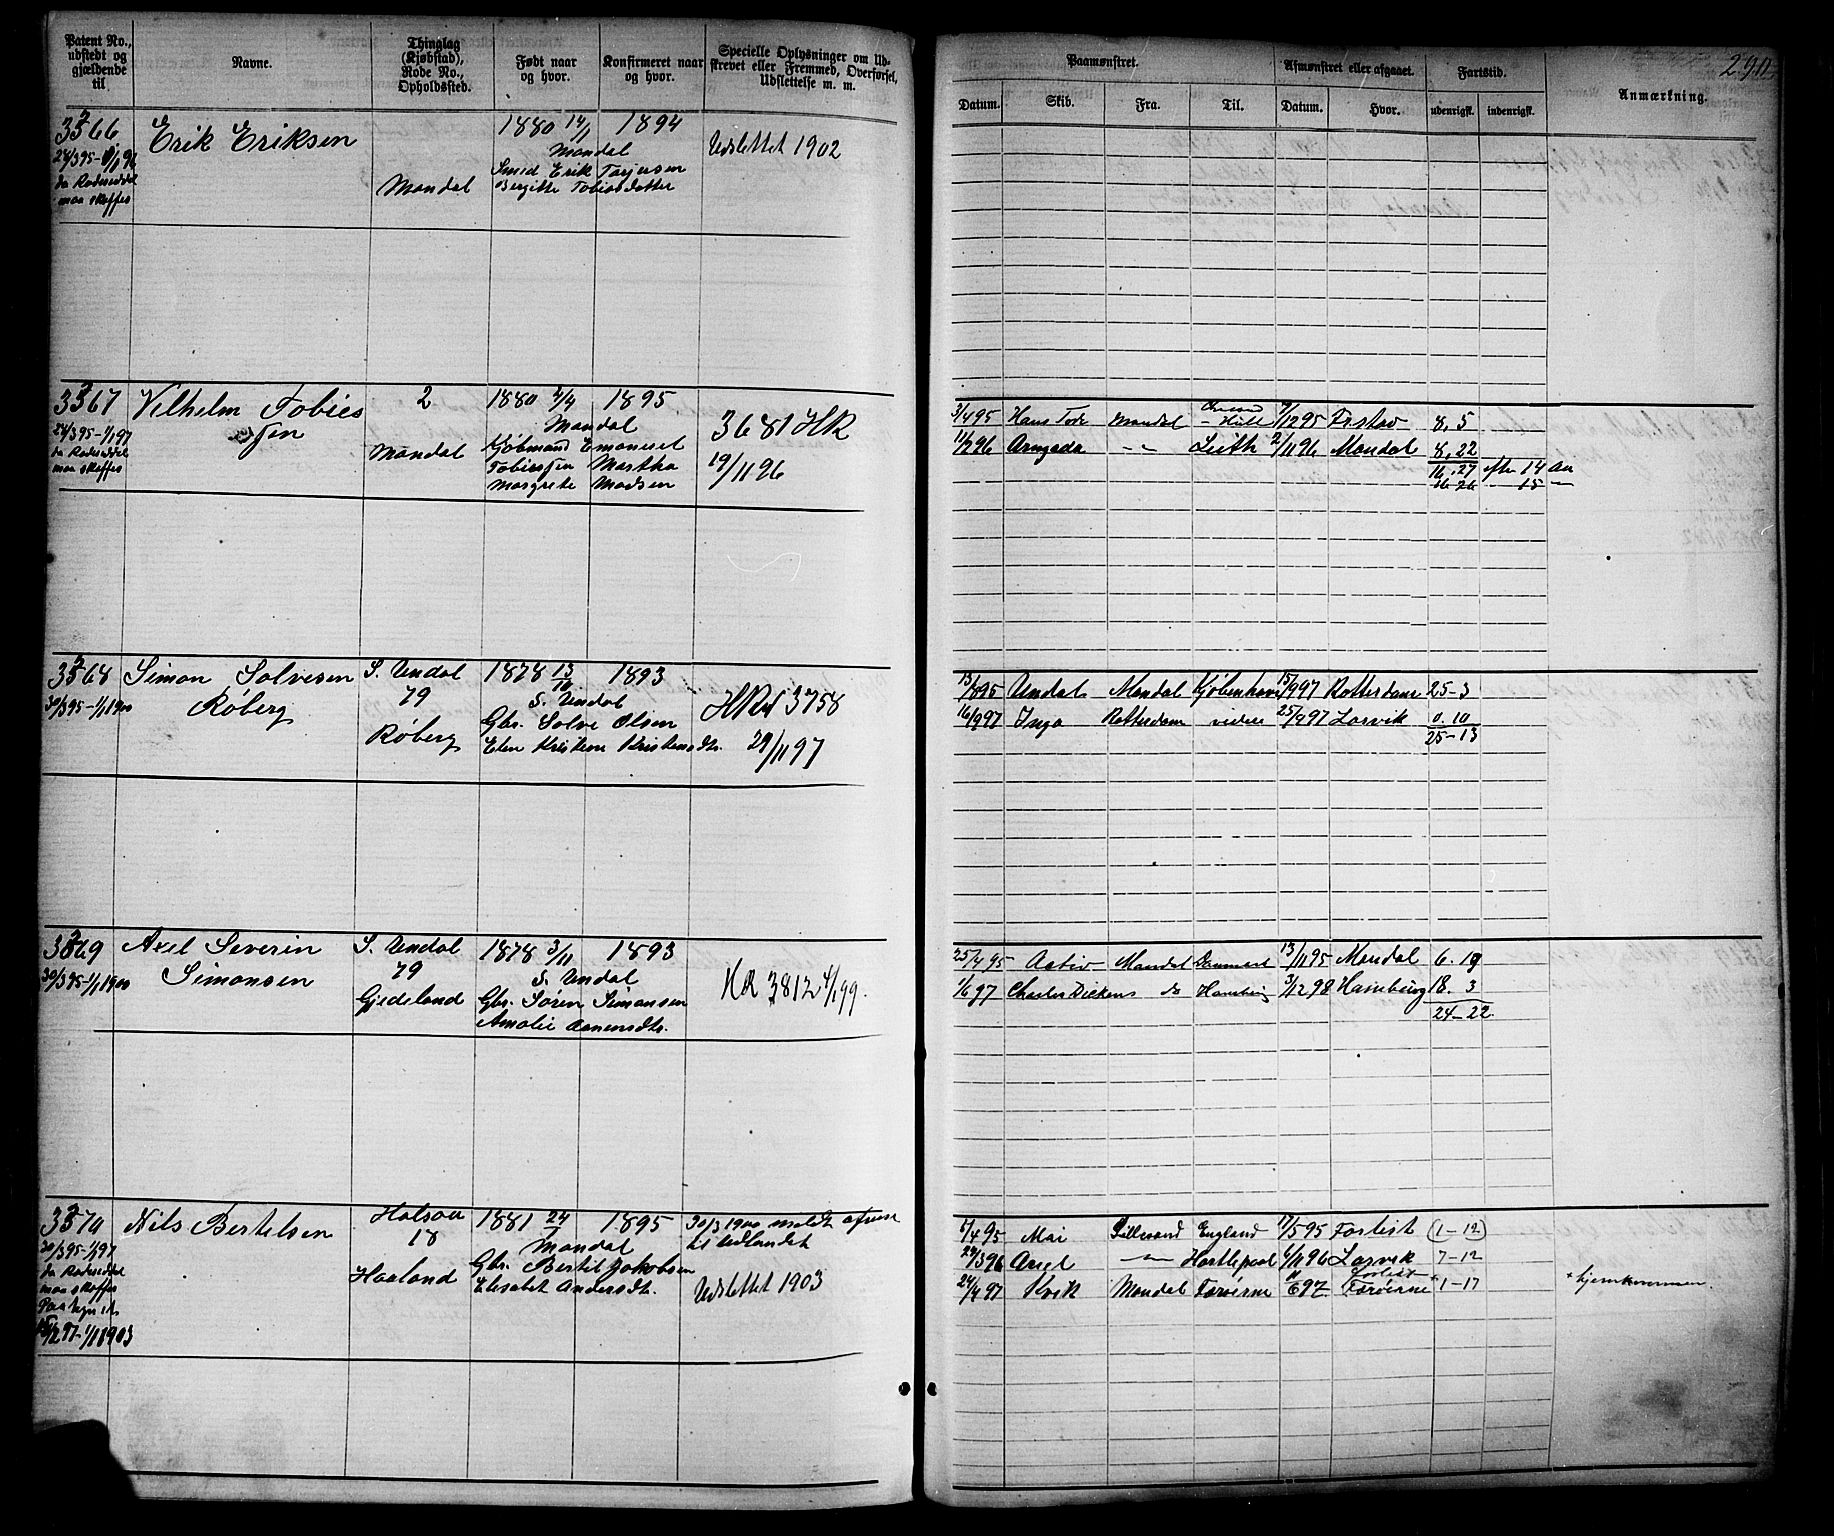 Patent No.,
udstedt og
gjældende
til.
Navne.
Thinglag
(Kjøbstad),
Rode No.,
Opholdssted.
Født naar
og hvor.
Konfirmeret naar
og hvor.
Specielle Oplysninger om Ud-
skrevet eller Fremmed, Overførsel,
Udslettelse m. m.
3366
24/3 95 - 1/1 96
da Rodeseddel
maa skaffes
Erik Eriksen
Mandal
1880 14/1 1894
Mandal
Smed Erik Tarjersen
Bergitte Tobiasdatter
Udslettet 1902
3367
24/3 95 - 1/1 97
da Rodeseddel
maa skaffes
Vilhelm Tobias
sen
2
Mandal
1880 2/4 1895
Mandal
Kjøbmand Emanuel
Tobiassen Martha
Margrete Madsen
3681 HR
19/11 96
3368
30/3 95 - 1/1 1900
Simon Salvesen
Røberg
S. Undal
79
Røberg
1878 13/10 1893
S. Undal
Gbr. Salve Olsen
Elen Kristine Kristensdt.
3758
29/11 97
3369
30/3 95 - 1/1 1900
Axel Severin
Simonsen
S. Undal
79
Gjedeland
1878 3/11 1893
S. Undal
Gbr. Søren Simonsen
Amalie Aanensdt.
HR 3812 4/1 99.
3370
30/3 95 - 1/1 97
da Rodeseddel
maa skaffes
Nils Bertelsen
Halsaa
18
Haaland
1881 24/1 1895
Mandal
Gbr. Bertil Jakobsen
Elisabet Andersdt.
30/3 1900 meldt afreist
til Udlandet
Udslettet 1903
290
Paamønstret.
Afmønstret eller afgaaet.
Fartstid.
Anmærkning.
Datum.
Skib.
Fra.
Til.
Datum.
Hvor.
udenrigsk.
indenrigsk.
3/4 95 Hans Tode Mandal - Hull 7/12 95 Frstad 8, 5
11/2 96 Arngada -"- Leith 2/11 96 Mandal 8, 22
16. 27 efter 14 An
16 26 - 15 -"-
13/8 95 Undal Mandal Kjøbenhavn 15/9 97 Rotterdam 25-3
16/9 97 Inga Rotterdam videre 25/9 97 Larvik 0. 10
25-13
25/4 95 Activ Mandal Danmark 13/11 95 Mandal 6. 19
1/6 97 Charles Dickens do Hamburg 3/12 98 Hamburg 18. 3
24-22
5/4 95 Mai Lillesand England 17/5 95 Forlist (1-12)
24/3 96 Ariel -"- Hartlepool 6/11 96 Larvik 7-12
24/4 97 Kvik Mandal Færøerne 11/6 97 Forlist Færøerne * 1-17 * hjemkommen.